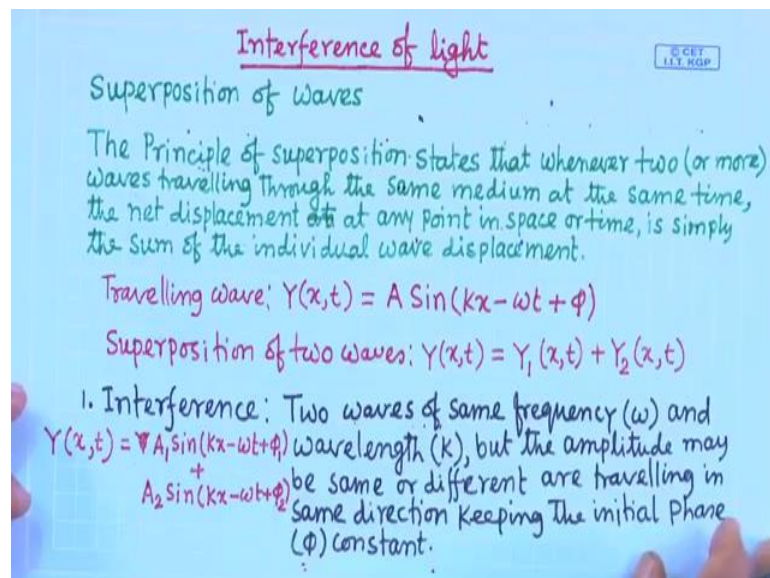 Interference of light
© CET
I.I.T. KGP
Superposition of waves
The Principle of superposition states that whenever two (or more)
waves travelling through the same medium at the same time,
the net displacement at at any point in space or time, is simply
the sum of the individual wave displacement.
Travelling wave: Y(x,t) = A Sin(kx-ωt+φ)
Superposition of two waves: Y(x,t) = Y₁(x,t) + Y₂(x,t)
1. Interference: Two waves of same frequency (ω) and
Y(x,t) = A₁ sin(kx-ωt+φ₁) wavelength (k), but the amplitude may
+
A₂ sin(kx-ωt+φ₂) be same or different are travelling in
same direction keeping the initial phase
(φ) constant.